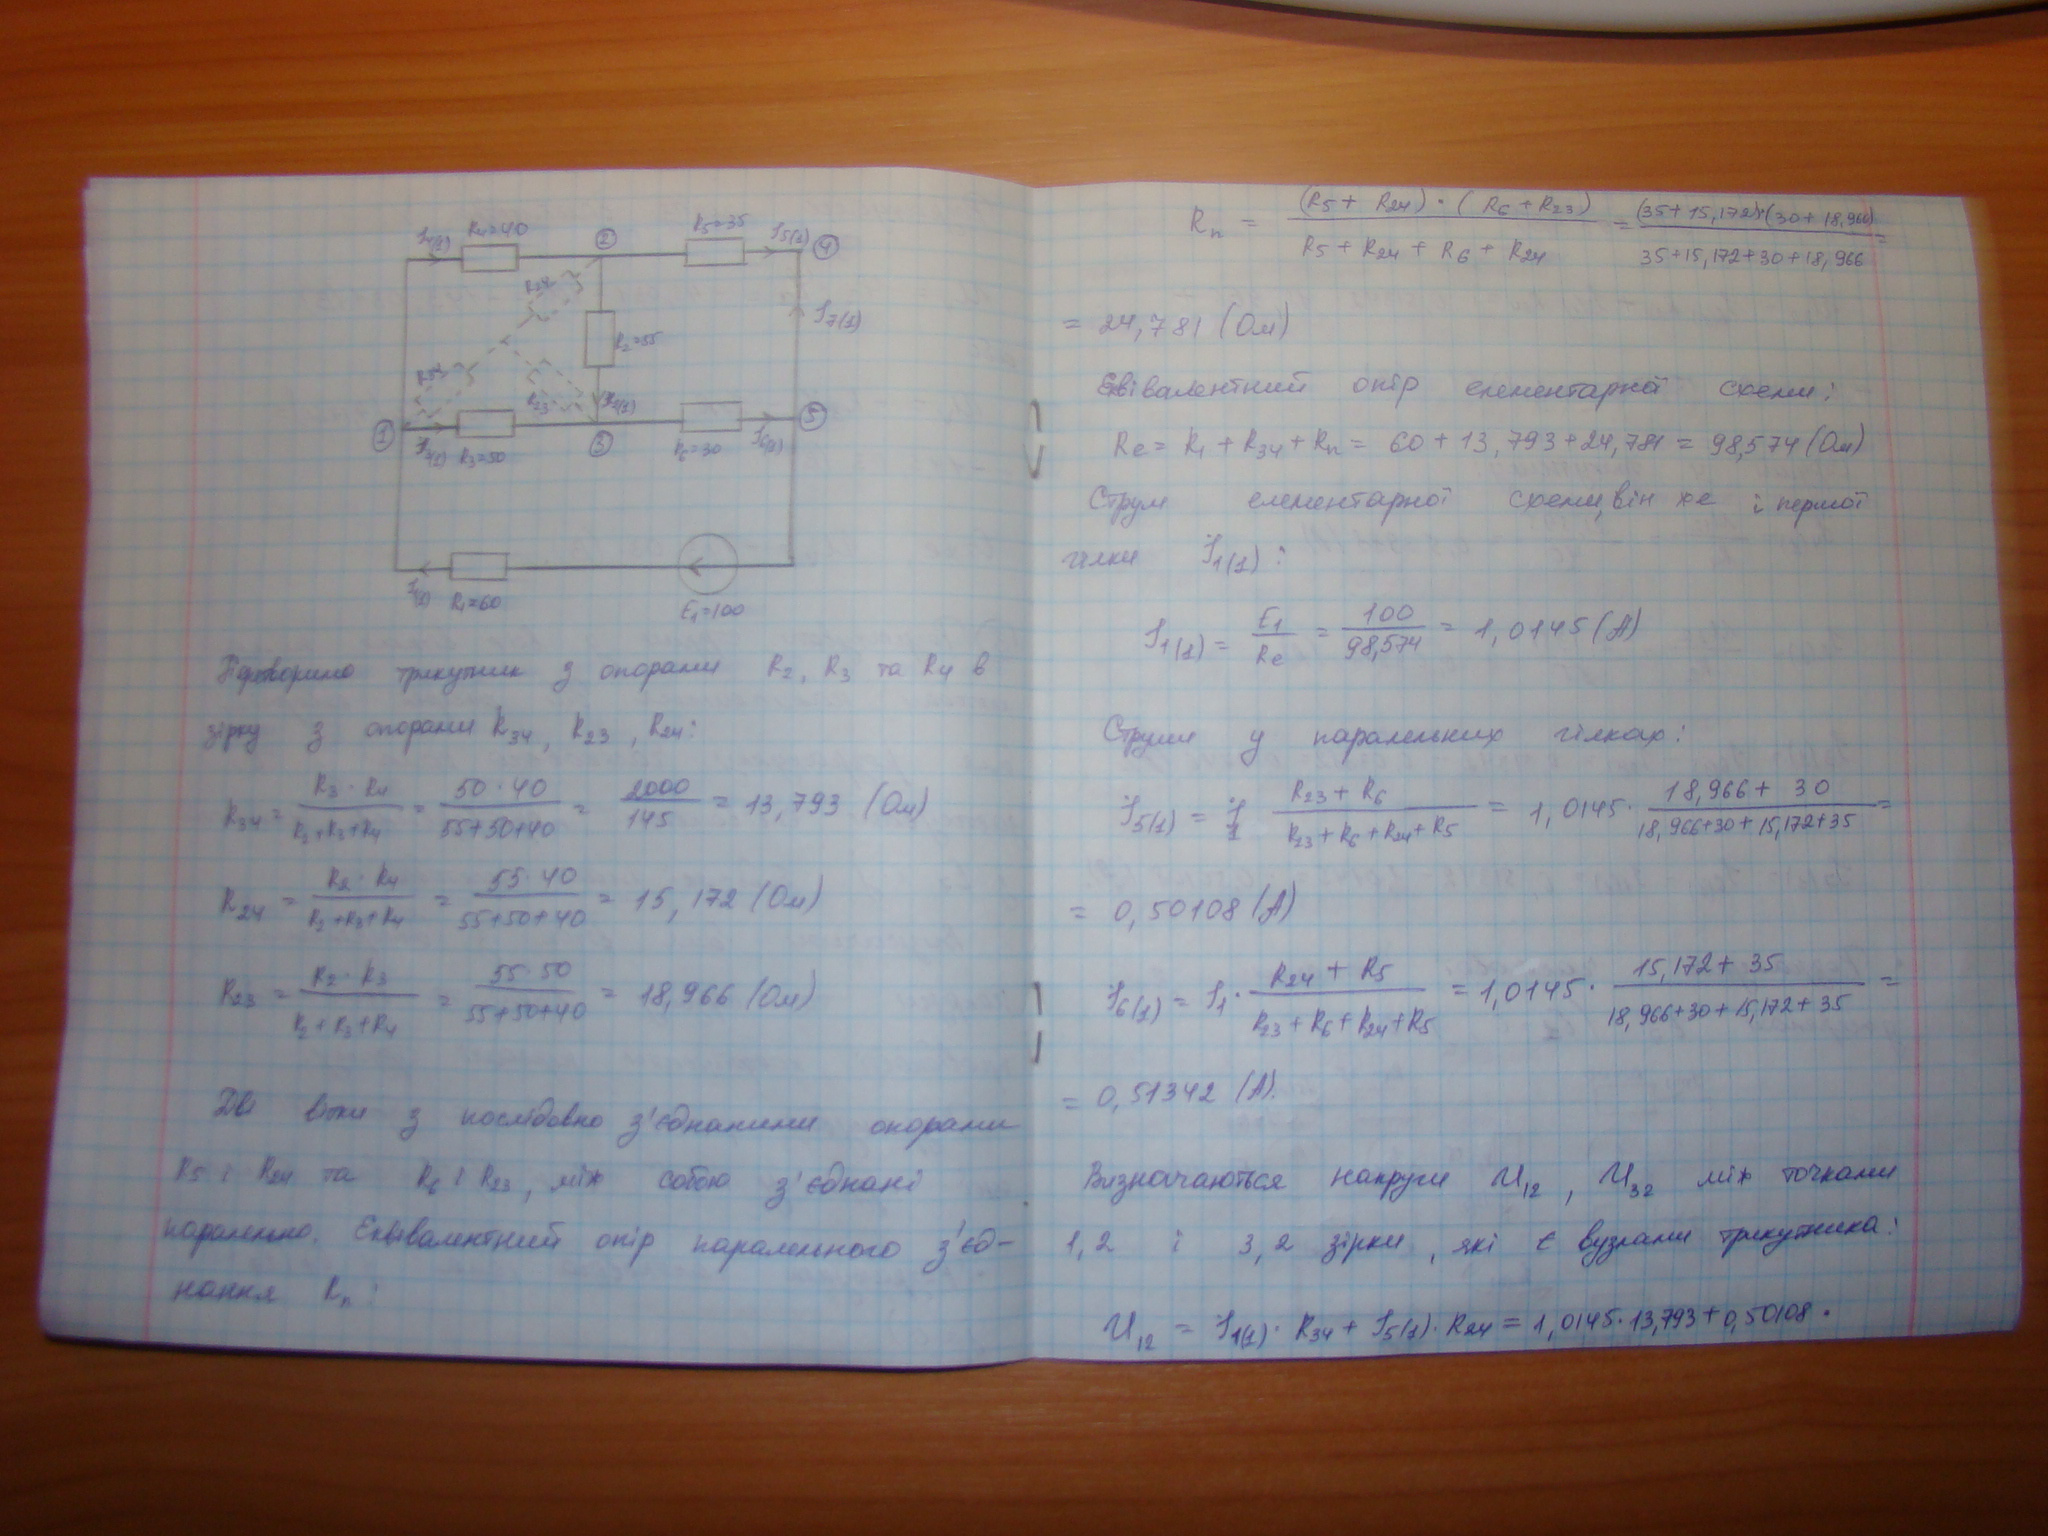 I4(1) R4=40 ② R5=35 I5(1) ④
R24
R2=55
I7(1)
R34
R23
I2(1)
① I3(1) R3=50 ③ R6=30 I6(1) ⑤
I1(1) R1=60 E1=100
трикутник з опорами R2, R3 та R4 в
зірку з опорами R34, R23, R24:
R34 = R3·R4 / R2+R3+R4 = 50·40 / 55+50+40 = 2000 / 145 = 13,793 (Ом)
R24 = R2·R4 / R2+R3+R4 = 55·40 / 55+50+40 = 15,172 (Ом)
R23 = R2·R3 / R2+R3+R4 = 55·50 / 55+50+40 = 18,966 (Ом)
Дві вітки з послідовно з'єднаними опорами
R5 і R24 та R6 і R23, між собою з'єднані
паралельно. Еквівалентний опір паралельного з'єд-
нання Rп:
Rп = (R5 + R24)·(R6+R23) / R5 + R24 + R6 + R24 = (35+15,172)·(30+18,966) / 35+15,172+30+18,966 =
= 24,781 (Ом)
Еквівалентний опір елементарної схеми:
Re = R1 + R34 + Rп = 60 + 13,793+24,781 = 98,574 (Ом)
Струм елементарної схеми, він же і першої
гілки I1(1):
I1(1) = E1 / Re = 100 / 98,574 = 1,0145 (А)
Струми у паралельних гілках:
I5(1) = I1 R23 + R6 / R23+R6+R24+R5 = 1,0145· 18,966+ 30 / 18,966+30+15,172+35 =
= 0,50108 (А)
I6(1) = I1· R24 + R5 / R23+R6+R24+R5 = 1,0145· 15,172+ 35 / 18,966+30+15,172+35 =
= 0,51342 (А).
Визначаються напруги U12, U32 між точками
1,2 і 3,2 зірки, які є вузлами трикутника:
U12 = I1(1)·R34 + I5(1)·R24 = 1,0145·13,793+0,50108·